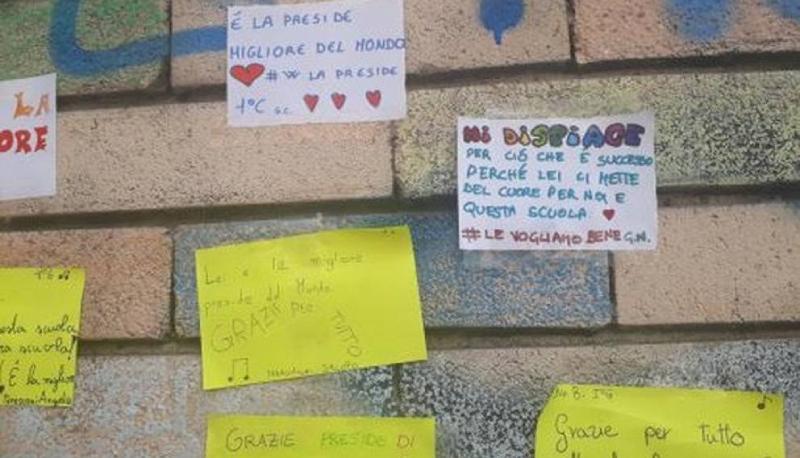 É LA PRESIDE
MIGLIORE DEL MONDO
#W LA PRESIDE
1°C S.C.
LA
ORE
MI DISPIACE
PER CIÓ CHE É SUCCESSO
PERCHÉ LEI CI METTE
DEL CUORE PER NOI E
QUESTA SCUOLA.
#LE VOGLIAMO BENE G.N.
Lei e la migliore
preside del Mondo
GRAZIE per
TUTTO
scuola
scuola!
É la miglior
GRAZIE PRESIDE DI
Grazie per tutto